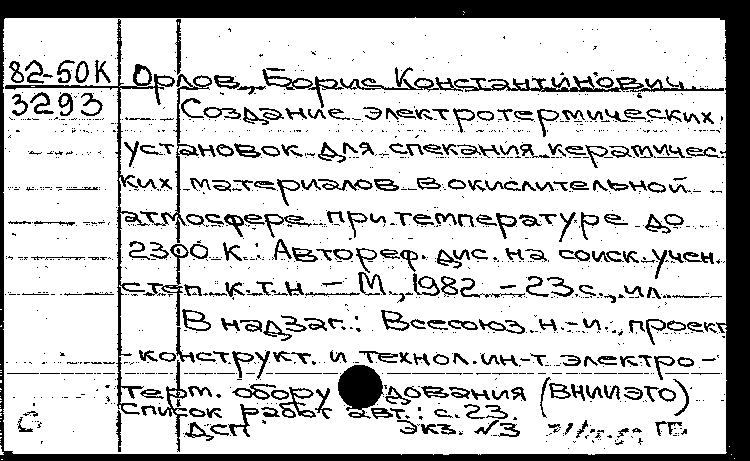 82-50К Орлов, Борис Константинович.
3293 Создание электротермических
установок для спекания керамичес-
ких материалов в окислительной
атмосфере при температуре до
2300 К : Автореф. дис. на соиск. учен.
степ. к.т.н. – М., 1982 – 23 с., ил
В надзаг.: Всесоюз. н.-и., проект
-конструкт. и технол. ин-т электро-
терм. оборудования (ВНИИЭТО)
Список работ авт.: с. 23.
ДСП Экз. №3 ГБ